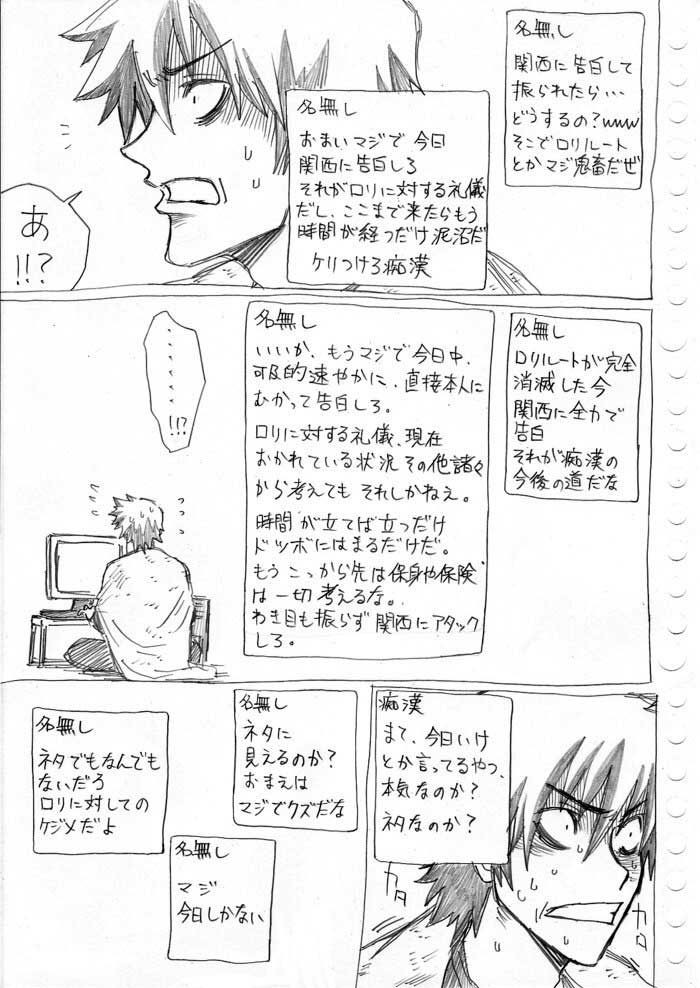 名無し
関西に告白して
振られたら…
どうするの?www
そこでロリルート
とかマジ鬼畜だぜ
名無し
おまいマジで今日
関西に告白しろ
それがロリに対する礼儀
だし、ここまで来たらもう
時間が経つだけ泥沼だ
ケリつけろ痴漢
あ
!!?
名無し
ロリルートが完全
消滅した今
関西に全力で
告白
それが痴漢の
今後の道だな
名無し
いいか、もうマジで今日中、
可及的速やかに、直接本人に
むかって告白しろ。
ロリに対する礼儀、現在
おかれている状況その他諸々
から考えてもそれしかねえ。
時間が立てば立つだけ
ドツボにはまるだけだ。
もうこっから先は保身や保険
は一切考えるな。
わき目も振らず関西にアタック
しろ。
・・・・・・!!?
痴漢
まて、今日いけ
とか言ってるやつ、
本気なのか?
ネタなのか?
カタ
カタ
名無し
ネタに
見えるのか?
おまえは
マジでクズだな
名無し
マジ
今日しかない
名無し
ネタでもなんでも
ないだろ
ロリに対しての
ケジメだよ